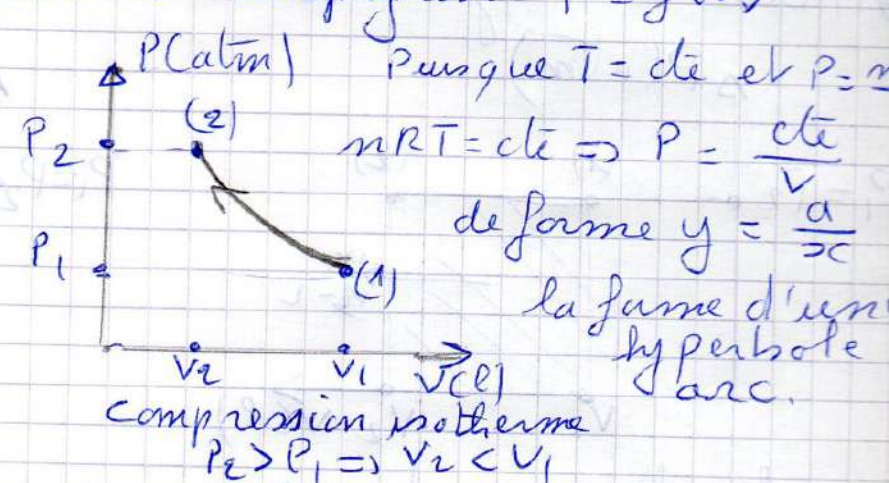 P(atm) Puisque T = cte et P =
P2 (2) nRT = cte => P = cte / V
de forme y = a / x
P1 (1) la forme d'un
hyperbole
V2 V1 V(l) arc.
compression isotherme
P2 > P1 => V2 < V1